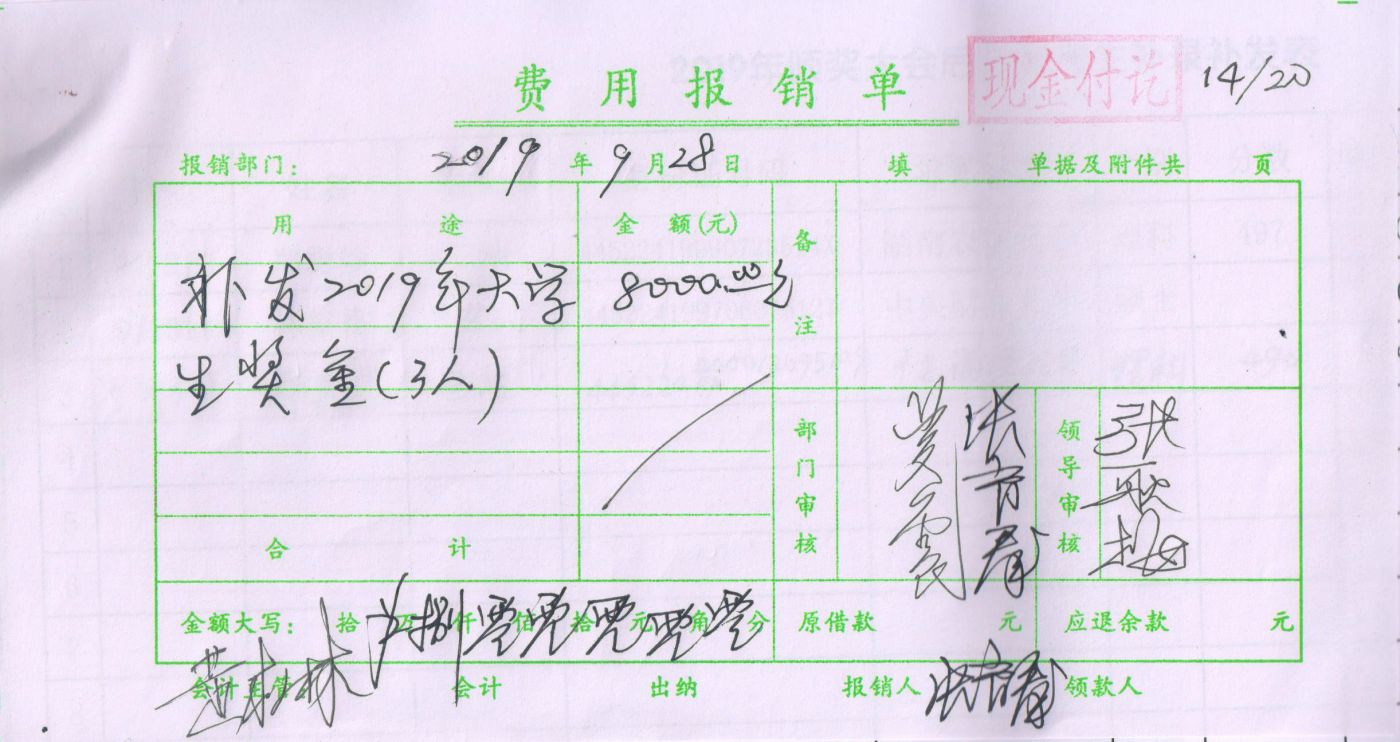 费用报销单 现金付讫 14/20
报销部门: 2019年9月28日 填 单据及附件共 页
用途 金额(元) 备注
补发2019年大学 8000.00元
生奖金(3人)
部门审核 领导审核
合计
金额大写: 拾万捌仟零佰零拾零元零角零分 原借款 元 应退余款 元
会计主管 会计 出纳 报销人 领款人